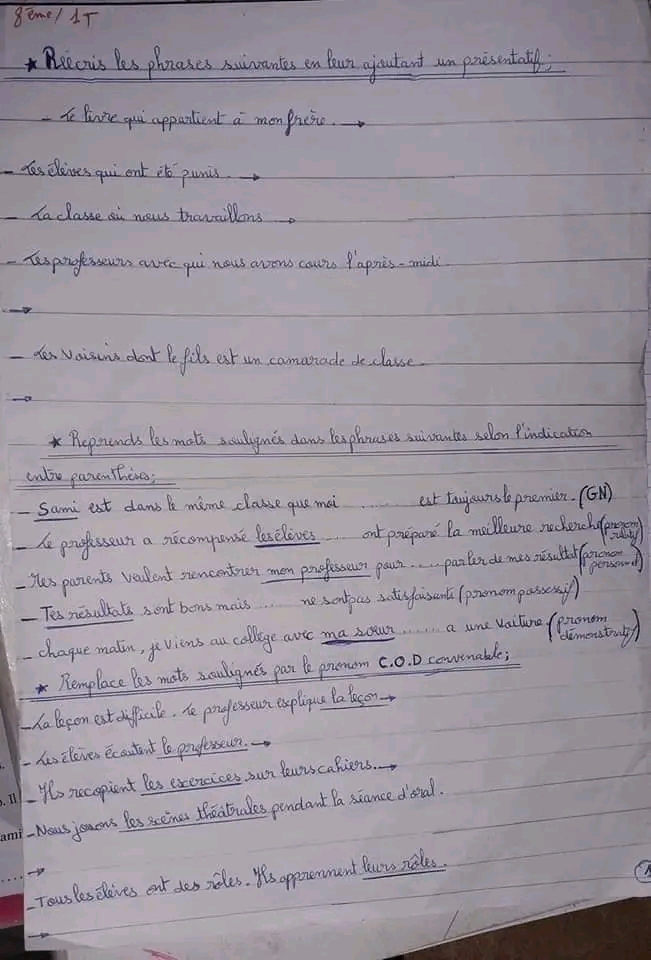 8ème / 1T
★ Réécris les phrases suivantes en leur ajoutant un présentatif ;
- Le livre qui appartient à mon frère. →
- Les élèves qui ont été punis. →
- La classe où nous travaillons →
- Les professeurs avec qui nous avons cours l'après-midi
→
- Les voisins dont le fils est un camarade de classe.
→
★ Reprends les mots soulignés dans les phrases suivantes selon l'indication
entre parenthèses ;
- Sami est dans le même classe que moi ...... est toujours le premier. (GN)
- Le professeur a récompensé les élèves .... ont préparé la meilleure recherche (pronom relatif)
- Mes parents veulent rencontrer mon professeur pour ..... parler de mes résultat (pronom personnel)
- Tes résultats sont bons mais ..... ne sont pas satisfaisants (pronom possessif)
- chaque matin, je viens au collège avec ma sœur ...... a une voiture (pronom démonstratif)
★ Remplace les mots soulignés par le pronom C.O.D convenable ;
- La leçon est difficile. Le professeur explique la leçon →
- Les élèves écoutent le professeur. →
- Ils recopient les exercices sur leurs cahiers. →
- Nous jouons les scènes théâtrales pendant la séance d'oral.
→
- Tous les élèves ont des rôles. Ils apprennent leurs rôles.
→
. Il
ami
....